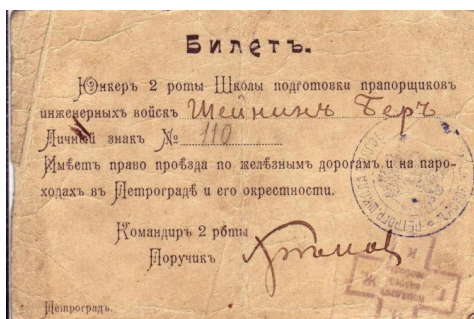 Билетъ.
Юнкеръ 2 роты Школы подготовки прапорщиковъ
инженерныхъ войскъ Шейнинъ Беръ
Личный знакъ № 110
Имѣетъ право проѣзда по желѣзнымъ дорогамъ и на паро-
ходахъ въ Петроградѣ и его окрестности.
Командиръ 2 роты
Поручикъ
Петроградъ.